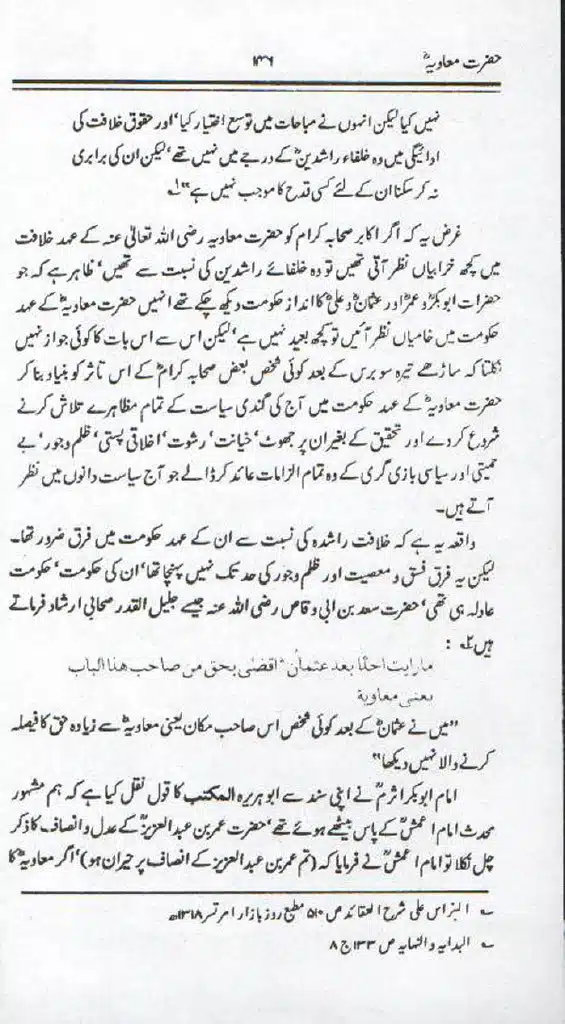 حضرت معاویہؓ
۱۳۶
نہیں کیا لیکن انہوں نے مباحات میں توسع اختیار کیا‘ اور حقوق خلافت کی
ادائیگی میں وہ خلفاء راشدینؓ کے درجے میں نہیں تھے‘ لیکن ان کی برابری
نہ کر سکنا ان کے لئے کسی قدح کا موجب نہیں ہے“ ۱؎
غرض یہ کہ اگر اکابر صحابہ کرام کو حضرت معاویہ رضی اللہ تعالیٰ عنہ کے عہد خلافت
میں کچھ خرابیاں نظر آتی تھیں تو وہ خلفائے راشدین کی نسبت سے تھیں‘ ظاہر ہے کہ جو
حضرات ابوبکرؓ و عمرؓ اور عثمانؓ و علیؓ کا انداز حکومت دیکھ چکے تھے انہیں حضرت معاویہؓ کے عہد
حکومت میں خامیاں نظر آئیں تو کچھ بعید نہیں ہے‘ لیکن اس سے اس بات کا کوئی جواز نہیں
نکلتا کہ ساڑھے تیرہ سو برس کے بعد کوئی شخص بعض صحابہ کرامؓ کے اس تاثر کو بنیاد بنا کر
حضرت معاویہؓ کے عہد حکومت میں آج کی گندی سیاست کے تمام مظاہرے تلاش کرنے
شروع کر دے اور تحقیق کے بغیر ان پر جھوٹ‘ خیانت‘ رشوت‘ اخلاقی پستی‘ ظلم و جور‘ بے
حمیتی اور سیاسی بازی گری کے وہ تمام الزامات عائد کر ڈالے جو آج سیاست دانوں میں نظر
آتے ہیں۔
واقعہ یہ ہے کہ خلافت راشدہ کی نسبت سے ان کے عہد حکومت میں فرق ضرور تھا۔
لیکن یہ فرق فسق و معصیت اور ظلم و جور کی حد تک نہیں پہنچا تھا‘ ان کی حکومت‘ حکومت
عادلہ ہی تھی‘ حضرت سعد بن ابی وقاص رضی اللہ عنہ جیسے جلیل القدر صحابی ارشاد فرماتے
ہیں ۲؎ :
مارایت احدًا بعد عثمانؓ اقضٰی بحق من صاحب ھذا الباب
یعنی معاویة
”میں نے عثمانؓ کے بعد کوئی شخص اس صاحب مکان یعنی معاویہؓ سے زیادہ حق کا فیصلہ
کرنے والا نہیں دیکھا“
امام ابوبکر اثرمؒ نے اپنی سند سے ابو ہریرہ المکتب کا قول نقل کیا ہے کہ ہم مشہور
محدث امام اعمشؒ کے پاس بیٹھے ہوئے تھے‘ حضرت عمر بن عبدالعزیزؒ کے عدل و انصاف کا ذکر
چل نکلا تو امام اعمشؒ نے فرمایا کہ (تم عمر بن عبدالعزیز کے انصاف پر حیران ہو)‘ اگر معاویہؓ کا
۱؎ النبراس علی شرح العقائد ص ۵۱۰ مطبع روز بازار امرتسر ۱۳۱۸ھ
۲؎ البدایہ والنہایہ ص ۱۳۳ ج ۸